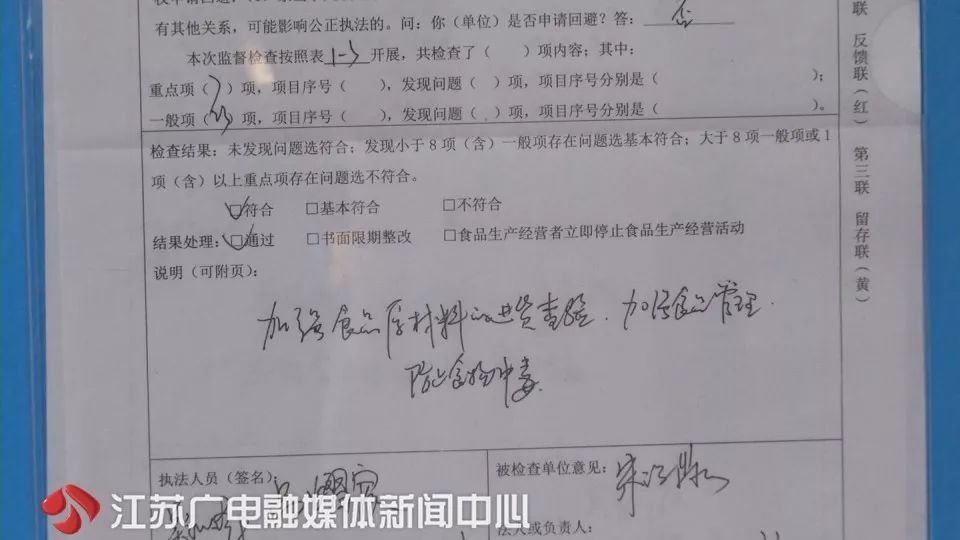 有其他关系，可能影响公正执法的。问：你（单位）是否申请回避？答： 否
本次监督检查按照表1-3开展，共检查了（ ）项内容；其中：
重点项（ ）项，项目序号（ ），发现问题（ ）项，项目序号分别是（ ）；
一般项（ ）项，项目序号（ ），发现问题（ ）项，项目序号分别是（ ）。
检查结果：未发现问题选符合；发现小于 8 项（含）一般项存在问题选基本符合；大于 8 项一般项或 1
项（含）以上重点项存在问题选不符合。
☑符合 □基本符合 □不符合
结果处理：☑通过 □书面限期整改 □食品生产经营者立即停止食品生产经营活动
说明（可附页）：
加强食品原材料的进货查验．加强食品管理．
防止食物中毒
执法人员（签名）
被检查单位意见：
法人或负责人：
联 反馈联（红） 第三联 留存联（黄）
江苏广电融媒体新闻中心